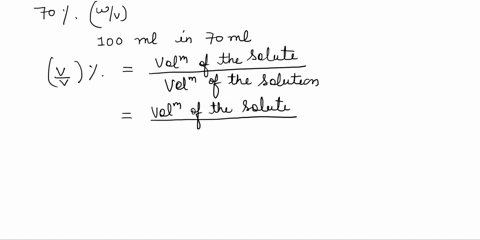 70 %. (w/v)
100 ml in 70 ml
(v/v) %. = Volm of the solute / Volm of the solution
= Volm of the solute